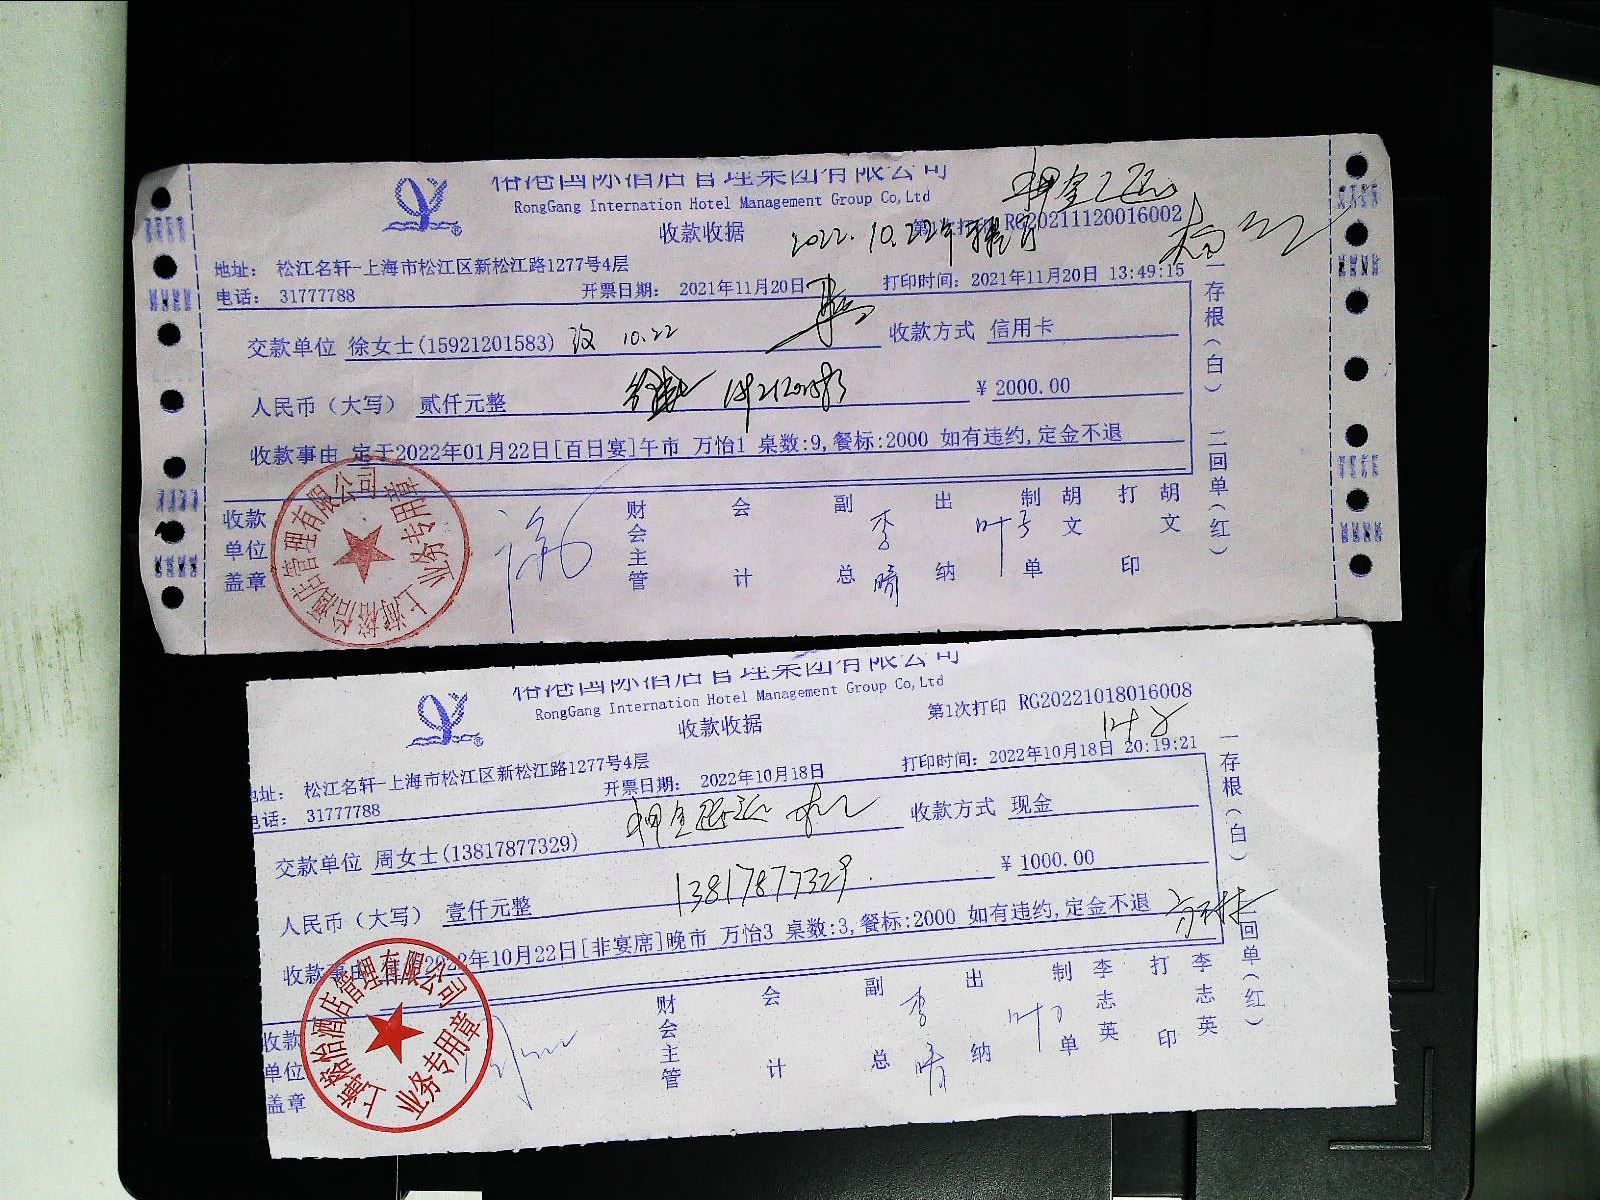 裕港国际酒店管理集团有限公司
RongGang Internation Hotel Management Group Co,Ltd
押金已退
收款收据
2022.10.22
RG20211120016002
地址： 松江名轩-上海市松江区新松江路1277号4层
电话： 31777788
开票日期： 2021年11月20日
打印时间：2021年11月20日 13:49:15
交款单位 徐女士(15921201583) 改 10.22
收款方式 信用卡
人民币（大写） 贰仟元整
¥ 2000.00
收款事由 定于2022年01月22日[百日宴]午市 万怡1 桌数:9,餐标:2000 如有违约,定金不退
一存根（白） 二回单（红）
收款单位盖章
上海裕怡酒店管理有限公司
业务专用章
财会主管
会计
副总 李晴
出纳 叶
制单 胡文
打印 胡文
裕港国际酒店管理集团有限公司
RongGang Internation Hotel Management Group Co,Ltd
收款收据
第1次打印 RG20221018016008
地址： 松江名轩-上海市松江区新松江路1277号4层
电话： 31777788
开票日期： 2022年10月18日
打印时间：2022年10月18日 20:19:21
交款单位 周女士(13817877329)
押金已退
收款方式 现金
人民币（大写） 壹仟元整
13817877329.
¥ 1000.00
收款事由 2022年10月22日[非宴席]晚市 万怡3 桌数:3,餐标:2000 如有违约,定金不退
一存根（白） 二回单（红）
收款单位盖章
上海裕怡酒店管理有限公司
业务专用章
财会主管
会计
副总 李晴
出纳 叶
制单 李志英
打印 李志英